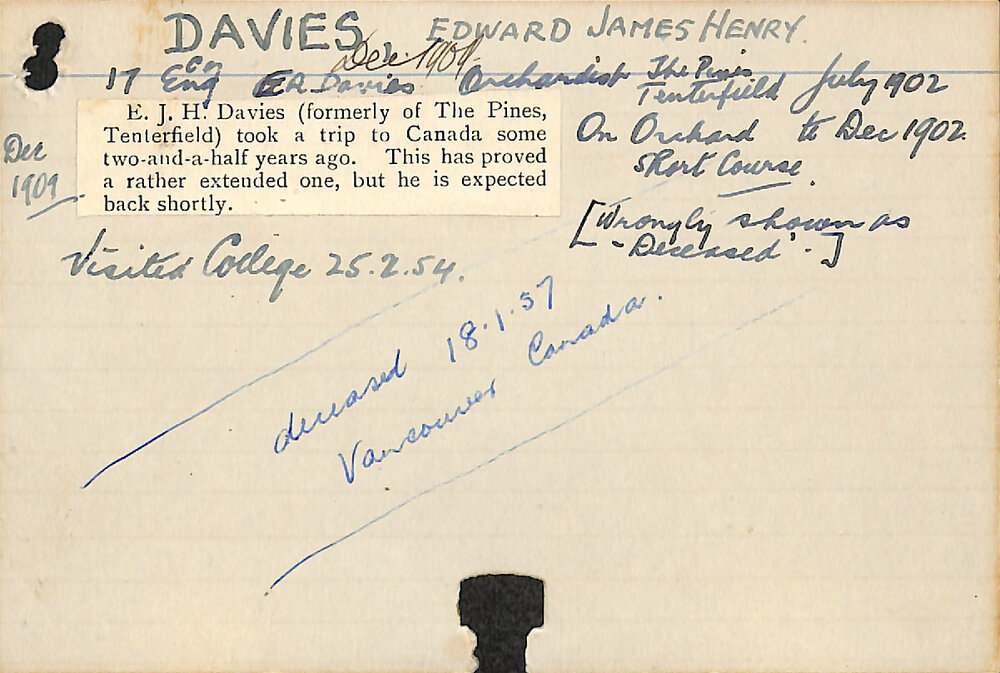 DAVIES EDWARD JAMES HENRY.
Dec. 1909.
17 Eng E.R. Davies Orchardist The Pines Tenterfield July 1902
On Orchard to Dec 1902.
Short Course.
Dec 1909
E. J. H. Davies (formerly of The Pines,
Tenterfield) took a trip to Canada some
two-and-a-half years ago. This has proved
a rather extended one, but he is expected
back shortly.
[Wrongly shown as
"Deceased".]
Visited College 25.2.54.
deceased 18.1.57
Vancouver Canada.